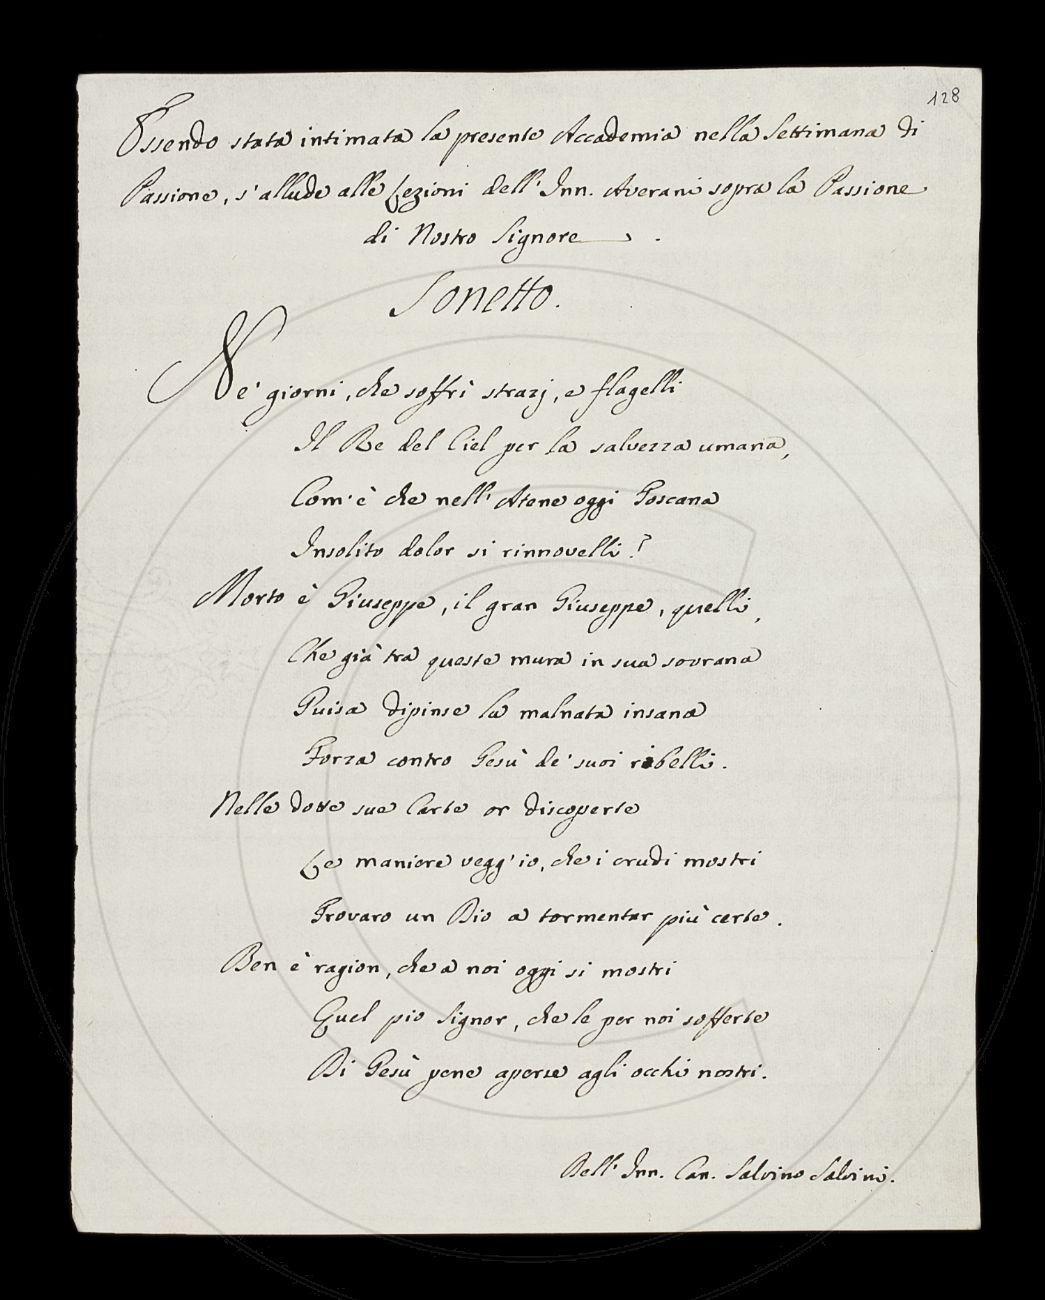 128
Essendo stata intimata la presente Accademia nella Settimana di
Passione, s'allude alle Lezioni dell'Inn. Averani sopra la Passione
di Nostro Signore.
Sonetto.
Ne' giorni, che soffrì strazj, e flagelli
Il Re del Ciel per la salvezza umana,
Com'è che nell'Atene oggi Toscana
Insolito dolor si rinnovelli?
Morto è Giuseppe, il gran Giuseppe, quelli,
Che già tra queste mura in sua sovrana
Guisa dipinse la malnata insana
Forza contro Gesù de' suoi ribelli.
Nelle dotte sue Carte or discoperte
Le maniere vegg'io, che i crudi mostri
Trovaro un Dio a tormentar più certe.
Ben è ragion, che a noi oggi si mostri
Quel pio Signor, che le per noi sofferte
Di Gesù pene aperse agli occhi nostri.
Dell'Inn. Can. Salvino Salvini.